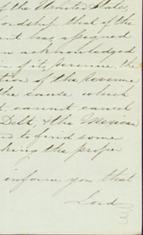 of the United States
that of the
has assigned
an acknowledged
of its revenue the
tion of the Revenue
the cause which
it cannot cancel
Debt, & the Mexican
to find some
king the proper
inform you that
Lord